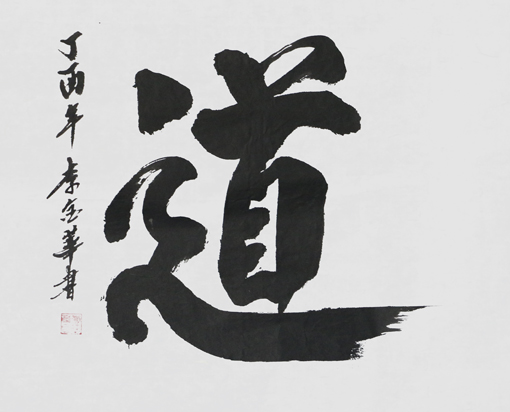 道
丁酉年 李金華書